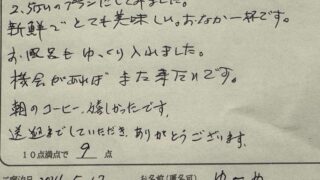 2.5万のプランにしてみました。
新鮮でとても美味しい。おなか一杯です。
お風呂もゆっくり入れました。
機会があればまた来たいです。
朝のコーヒー、嬉しかったです。
送迎までしていただき、ありがとうございます。
10点満点で 9 点
お名前(匿名可) ゆーや